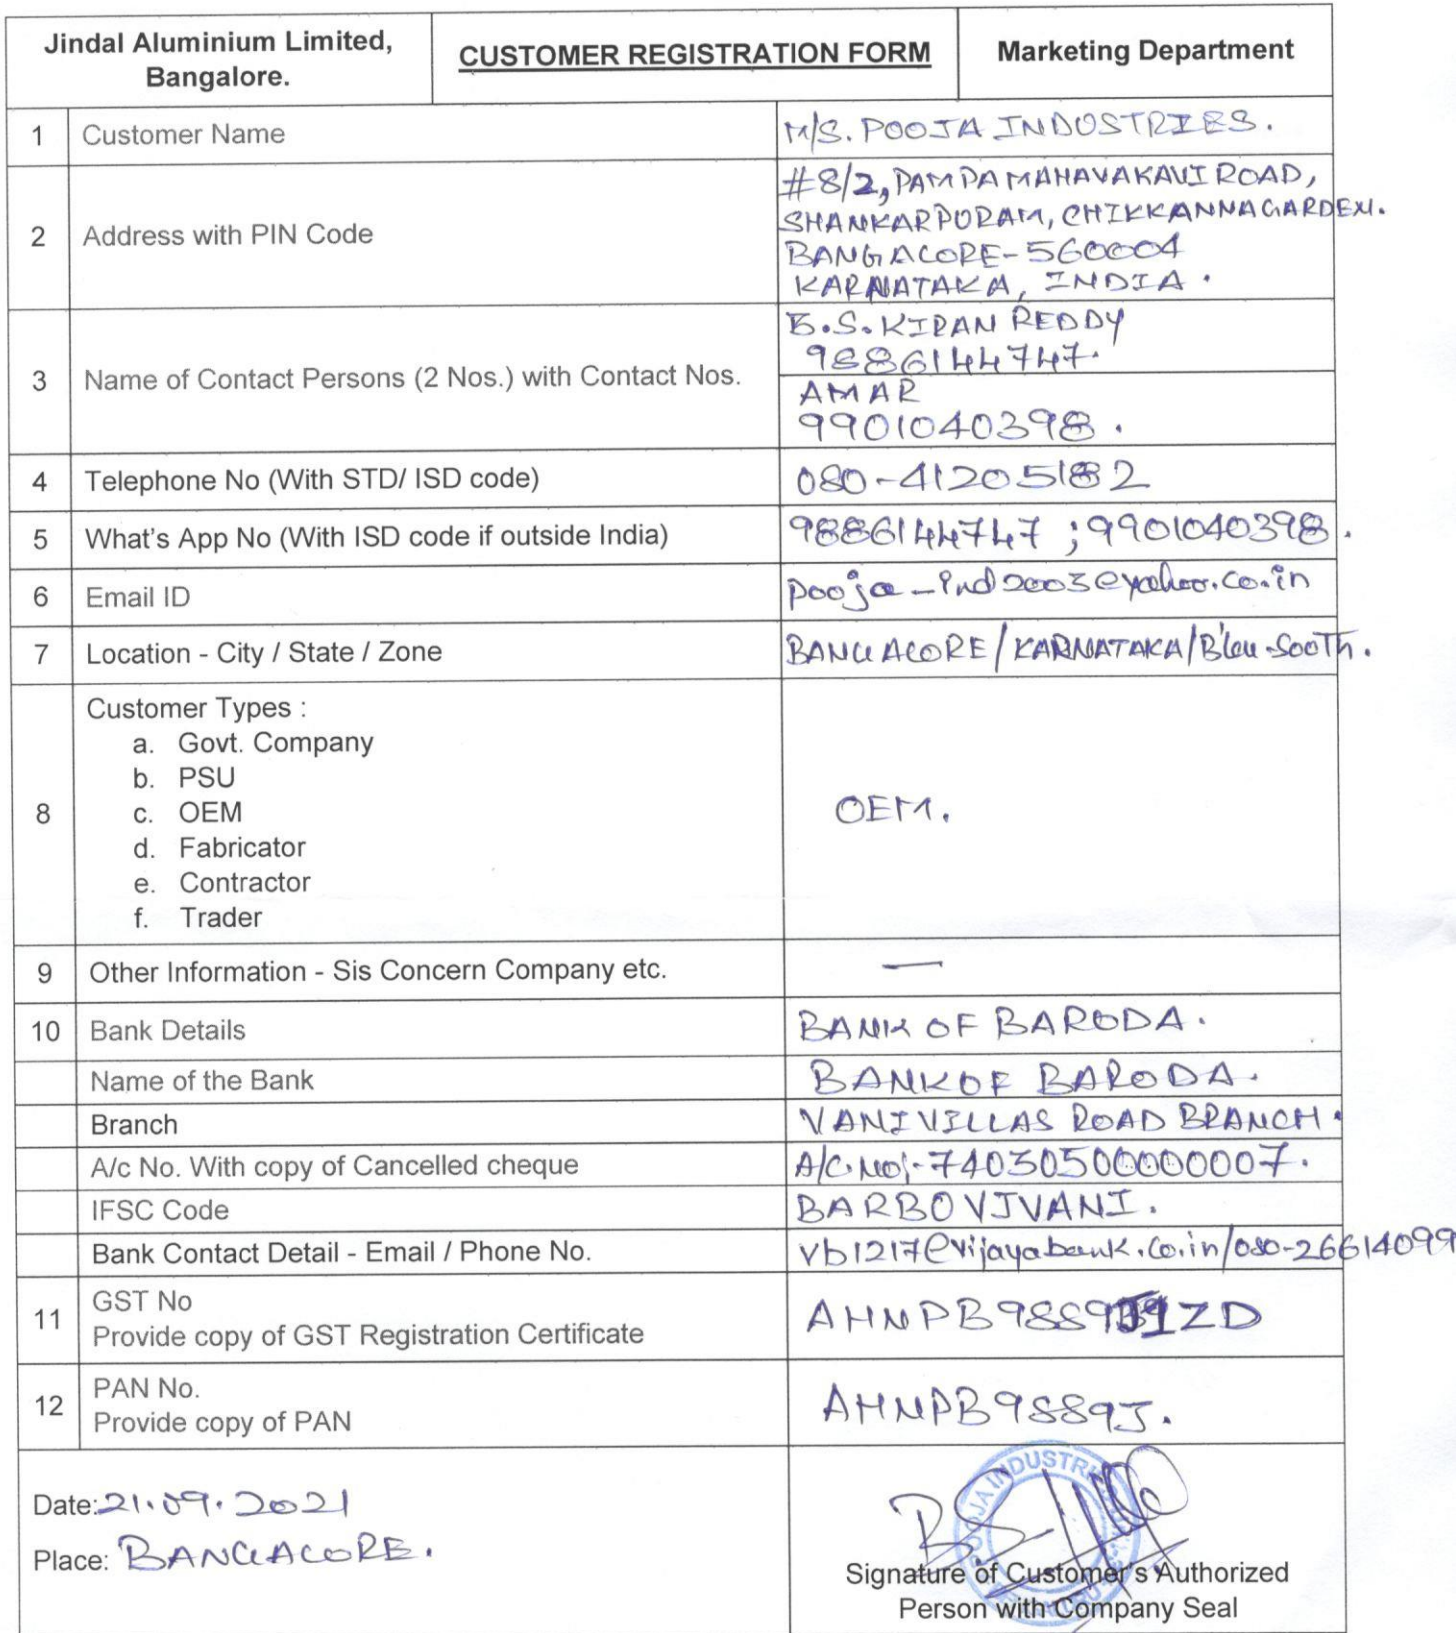 Jindal Aluminium Limited,
Bangalore.
CUSTOMER REGISTRATION FORM
Marketing Department
1 Customer Name M/S. POOJA INDUSTRIES.
2 Address with PIN Code
#8/2, PAMPAMAHAVAKAVI ROAD,
SHANKARPURAM, CHIKKANNAGARDEN.
BANGALORE-560004
KARNATAKA, INDIA.
3 Name of Contact Persons (2 Nos.) with Contact Nos.
B.S. KIRAN REDDY
9886144747.
AMAR
9901040398.
4 Telephone No (With STD/ ISD code) 080-41205182
5 What's App No (With ISD code if outside India) 9886144747 ; 9901040398.
6 Email ID pooja_ind2003@yahoo.co.in
7 Location - City / State / Zone BANGALORE/KARNATAKA/B'lou-South.
8 Customer Types :
a. Govt. Company
b. PSU
c. OEM
d. Fabricator
e. Contractor
f. Trader
OEM.
9 Other Information - Sis Concern Company etc. —
10 Bank Details BANK OF BARODA.
Name of the Bank BANK OF BARODA.
Branch VANIVILLAS ROAD BRANCH.
A/c No. With copy of Cancelled cheque A/C No:- 74030500000007.
IFSC Code BARB0VJVANI.
Bank Contact Detail - Email / Phone No. vb1217@vijayabank.co.in/080-26614099
11 GST No
Provide copy of GST Registration Certificate
AHNPB9889J1ZD
12 PAN No.
Provide copy of PAN
AHNPB9889J.
Date: 21.09.2021
Place: BANGALORE.
POOJA INDUSTRIES
Signature of Customer's Authorized
Person with Company Seal